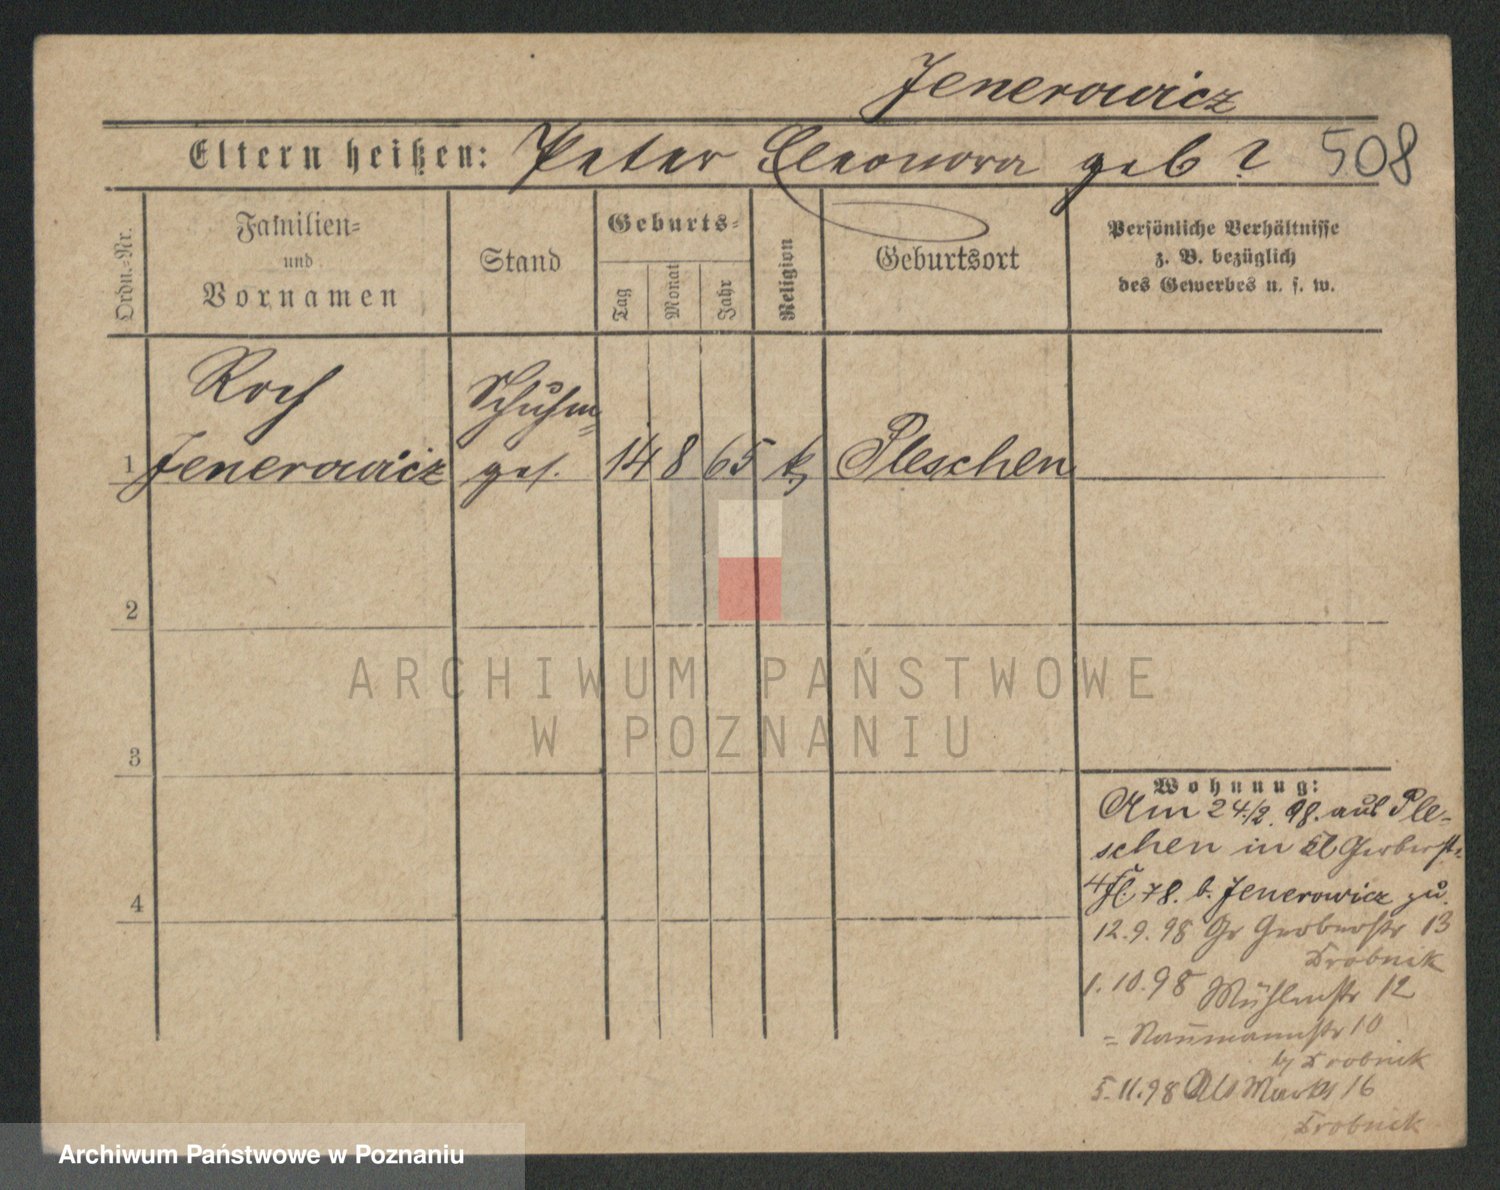 Jenerowicz
Eltern heißen: Peter Eleonora geb ? 508
Ordn.-Nr.
Familien-
und
Vornamen
Stand
Geburts-
Tag
Monat
Jahr
Religion
Geburtsort
Persönliche Verhältnisse
z. B. bezüglich
des Gewerbes u. s. w.
Roch Schuhm-
1 Jenerowicz ges. 14 8 65 k Pleschen
2
3
4
Wohnung:
Am 24./2. 98. aus Ple-
schen in kl Gerberstr.
4 78. b. Jenerowicz zu.
12.9.98 Gr Gerberstr 13
Drobnik
1.10.98 Mühlenstr 12
= Naumannstr 10
by Drobnik
5.11.98 Alt Markt 16
Drobnik
ARCHIWUM PAŃSTWOWE
W POZNANIU
Archiwum Państwowe w Poznaniu